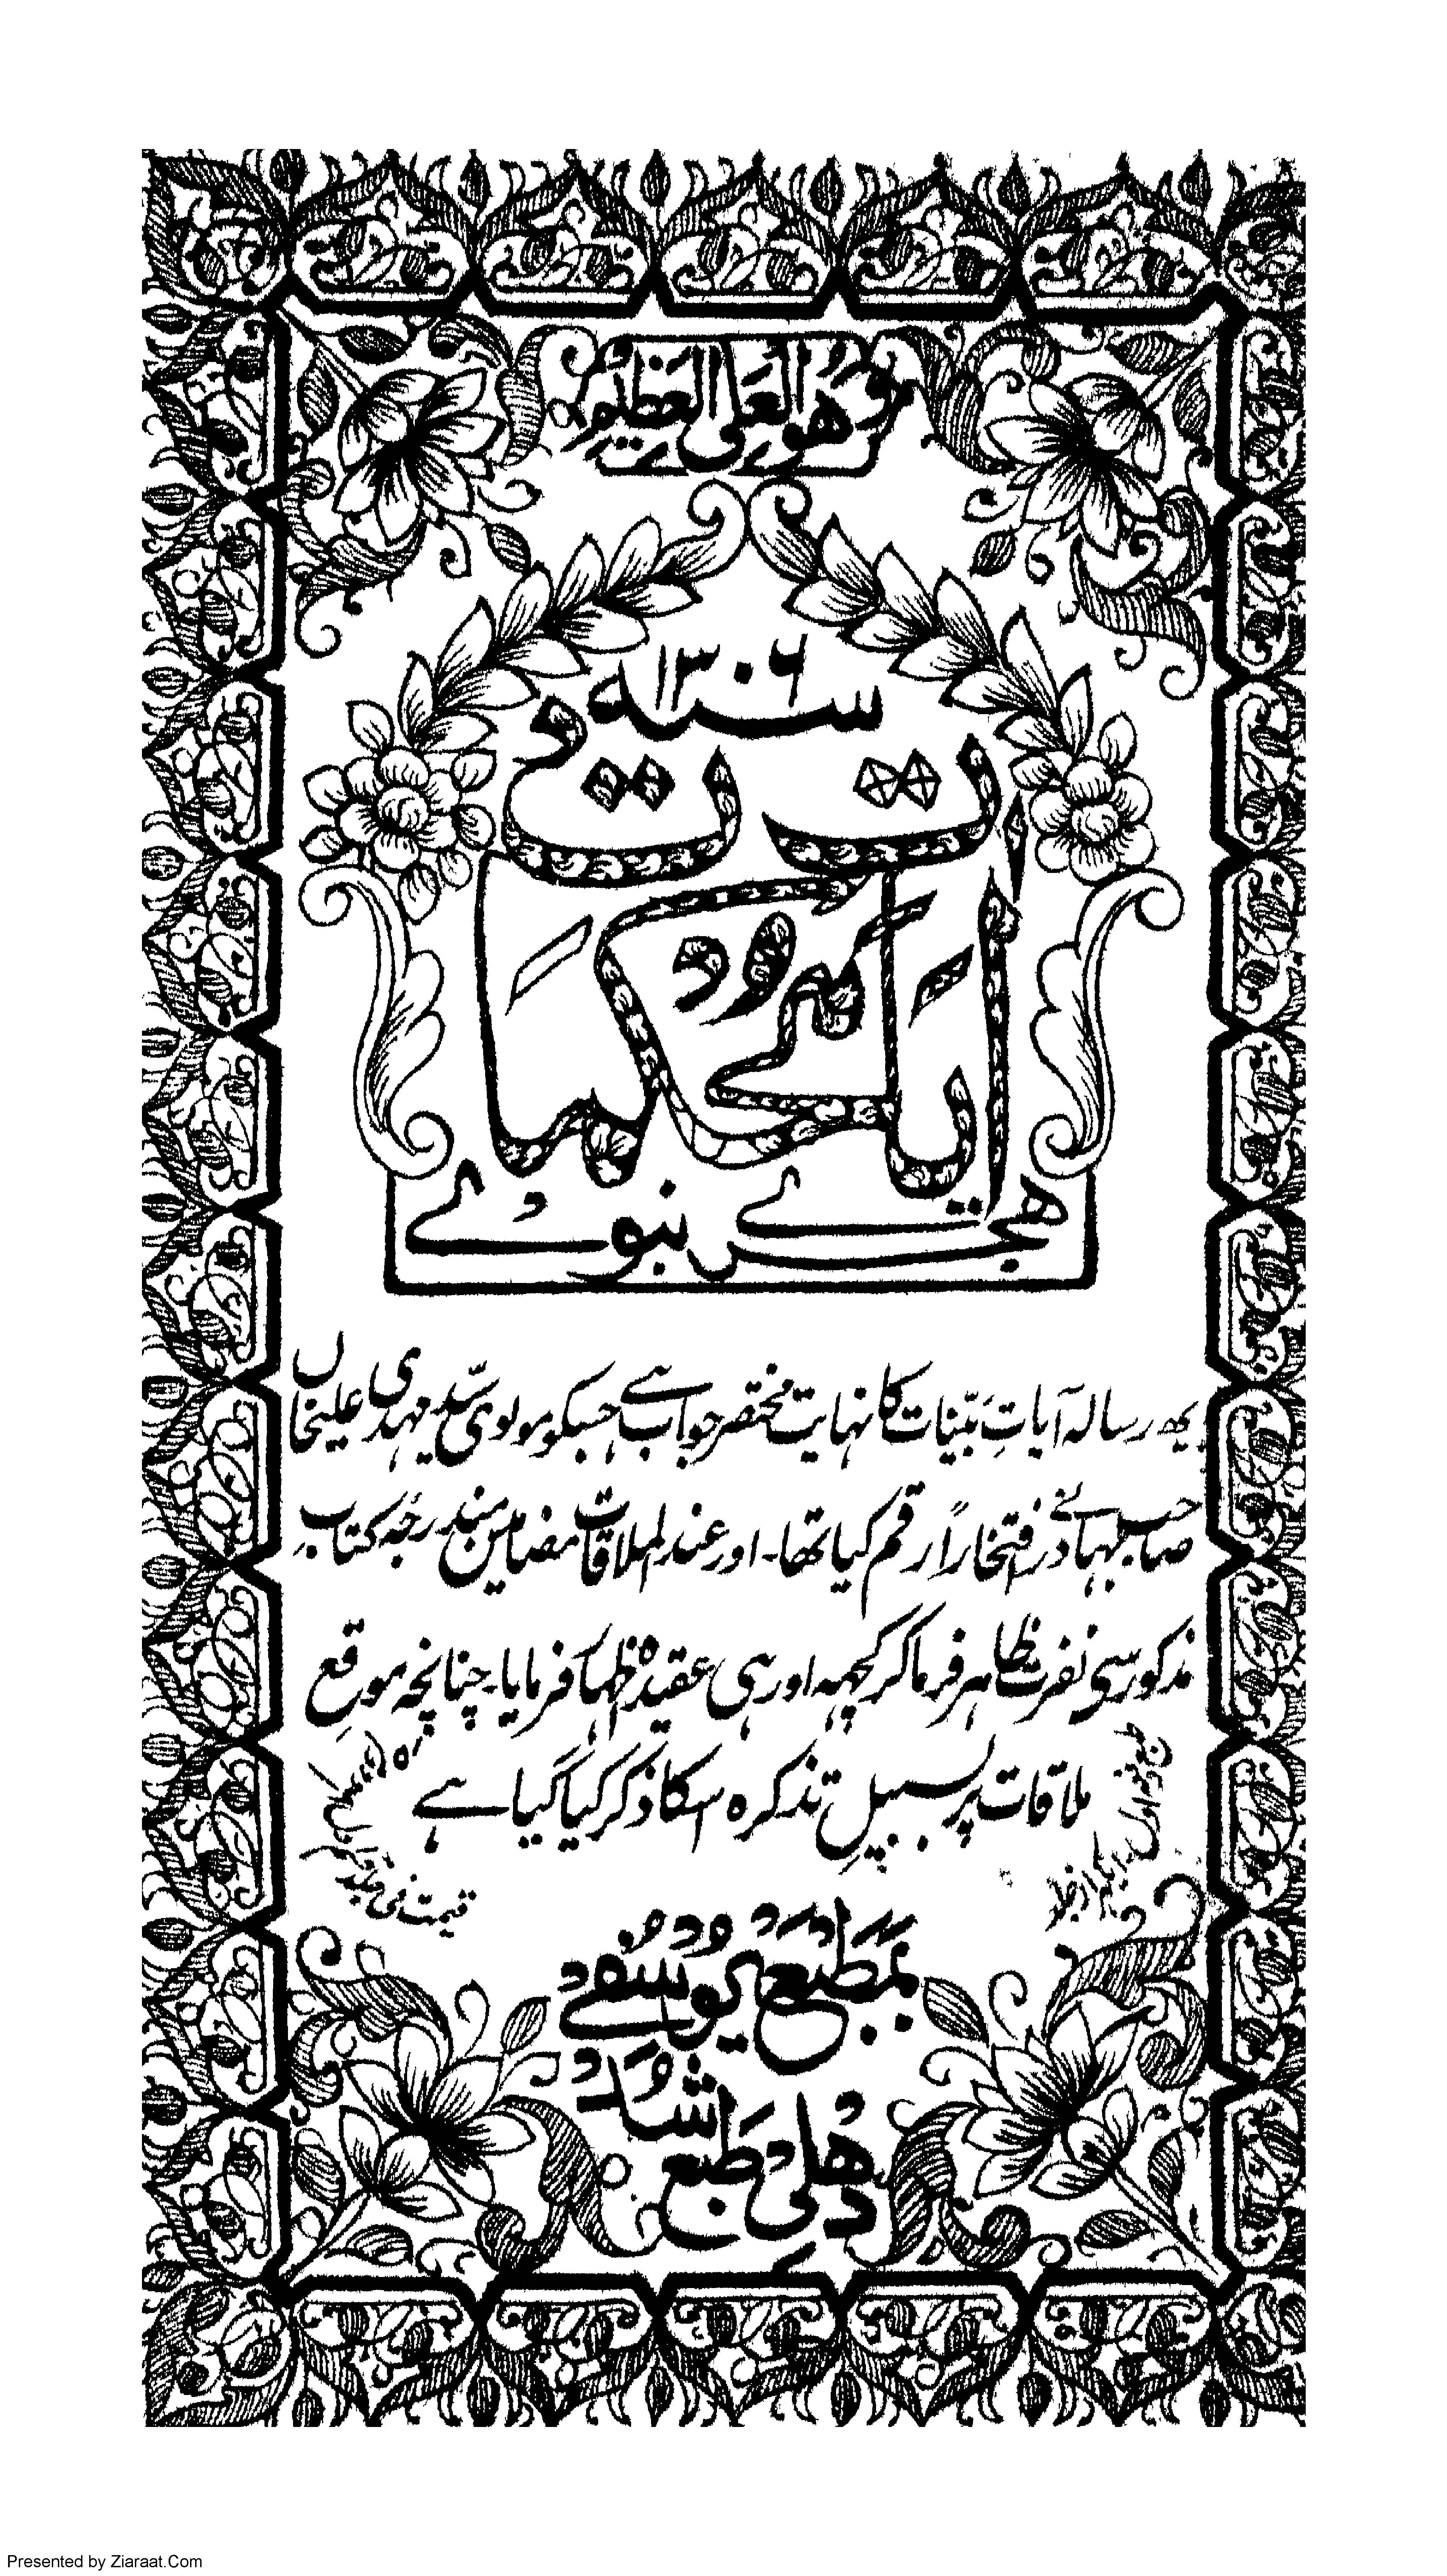 وَهُوَ العَلِیُّ العَظِیْمُ
سنہ ۱۳۰۶
آیات محکمات
ہجری نبوی
یہ رسالہ آیاتِ بیّنات کا نہایت مختصر جواب ہے جسکو مولوی سیّد مہدی علیخاں
صاحب بہادر نے افتخاراً رقم کیا تھا۔ اور عند الملاقات مضامین مندرجۂ کتابِ
مذکور سی نفرت ظاہر فرما کر کچھہ اور ہی عقیدہ اظہار فرمایا۔ چنانچہ موقعِ
ملاقات پر بسبیلِ تذکرہ اسکا ذکر کیا گیا ہے
دفعہ اول
ایکہزار جلد
قیمت فی جلد
بمَطبَع یُوسُفِی
دِهلی طَبع
شُدَ
Presented by Ziaraat.Com